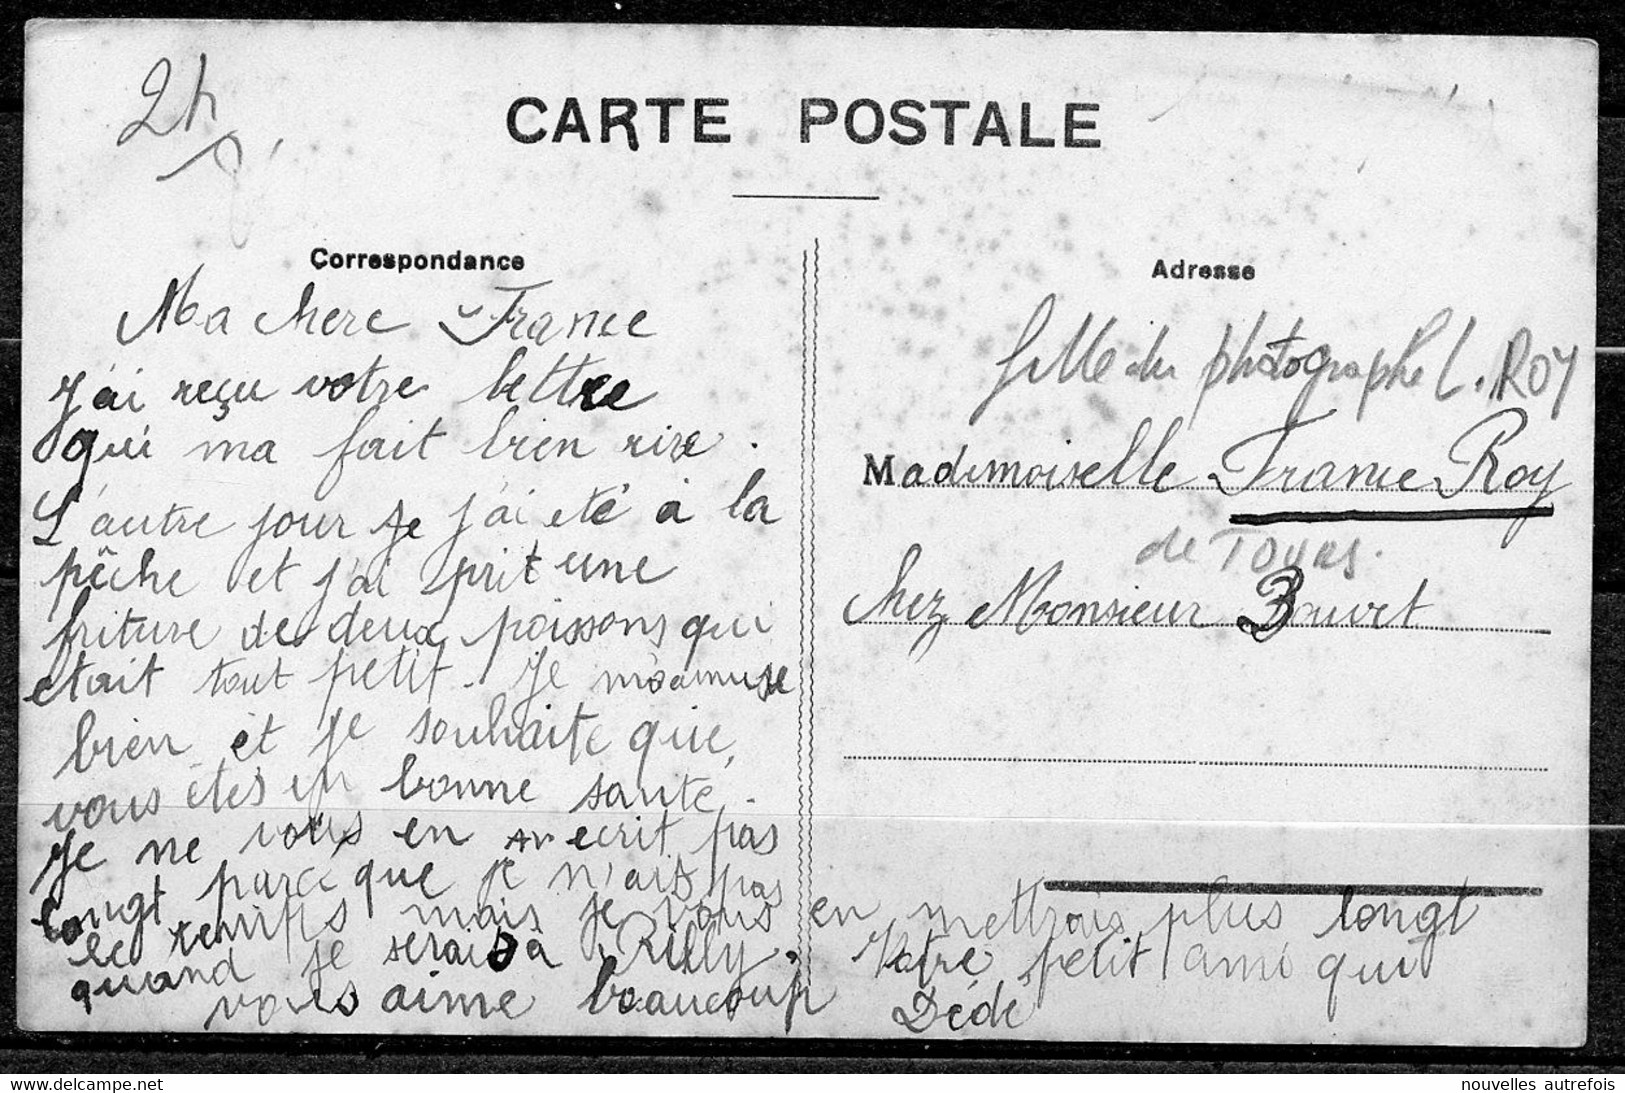 2h
CARTE POSTALE
Correspondance
Ma chere France
j'ai reçu votre lettre
qui ma fait bien rire.
L'autre jour je j'ai eté à la
pêche et j'ai prit une
friture de deux poissons qui
etait tout petit. Je m'amuse
bien et je souhaite que,
vous êtes en bonne santé.
Je ne vous en ecrit pas
longt parce que je n'ais pas
le temps mais je vous en mettrais plus longt
quand je serais à Rilly. Votre petit ami qui
vous aime beaucoup Dédé
Adresse
fille du photographe L. ROY
Mademoiselle France Roy
de TOURS.
chez Monsieur Bouvet
nouvelles autrefois